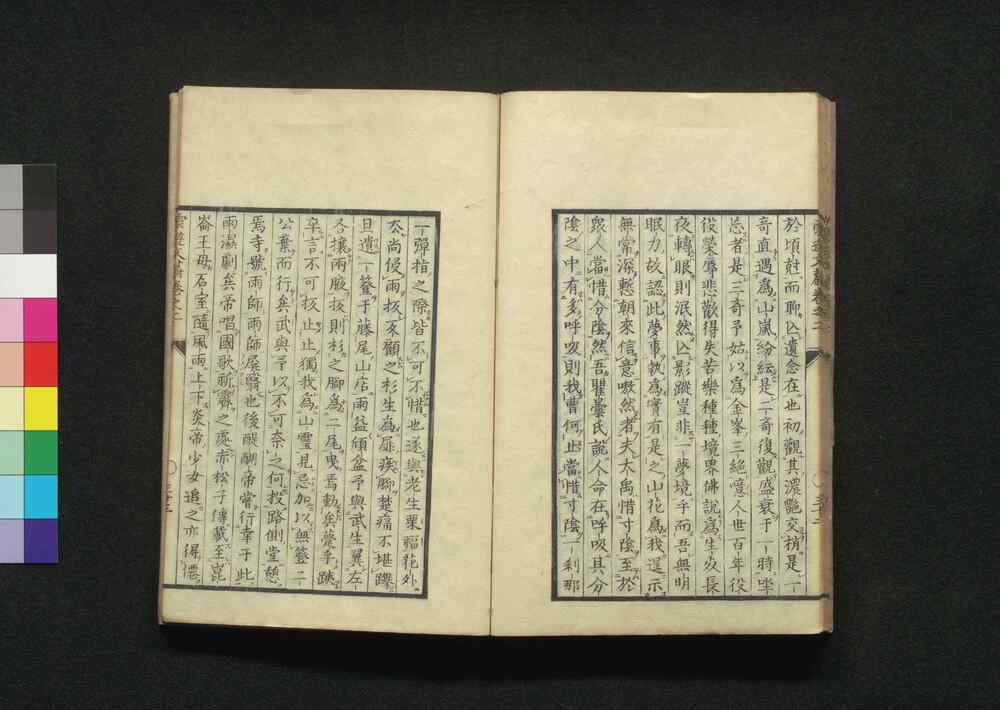 於頃刻而聊以遺念在也初觀其濃艷交梢是一
奇直遇為山嵐紛紜是一奇復觀盛衰于一時坐
忘者是三奇予姑以為金峯三絕噫人世百年役
役榮辱悲歡得失苦樂種種境界佛說為生死長
夜轉眼則泯然亡影蹤豈非一夢境乎而吾無明
眼力故認此夢事執為實有是之山花為我逞示
無常深慙朝來信意嗷然者夫大禹惜寸陰至於
眾人當惜分陰然吾瞿曇氏說人命在呼吸其分
陰之中有多呼吸則我曹何止當惜寸陰一剎那
一彈指之際皆不可不惜也遂與老生栗福花外
和尚侵雨扳不顧之杉生為尰疾腳楚痛不堪躋
且遺一簦于藤尾山店雨益傾盆予與武生翼左
右攘兩腋扳則杉之腳為二尾曳焉動矣聲乎跌
卒言不可扳止止獨我為山靈見忌加以無簦二
公棄而行矣武與予以不可奈之何投路側堂憩
焉寺號雨師雨師屏翳也後醍醐帝嘗行幸于此
雨濕劇矣帝唱國歌祈霽之處赤松子傳載至崑
崙王母石室隨風雨上下炎帝少女追之亦得僊